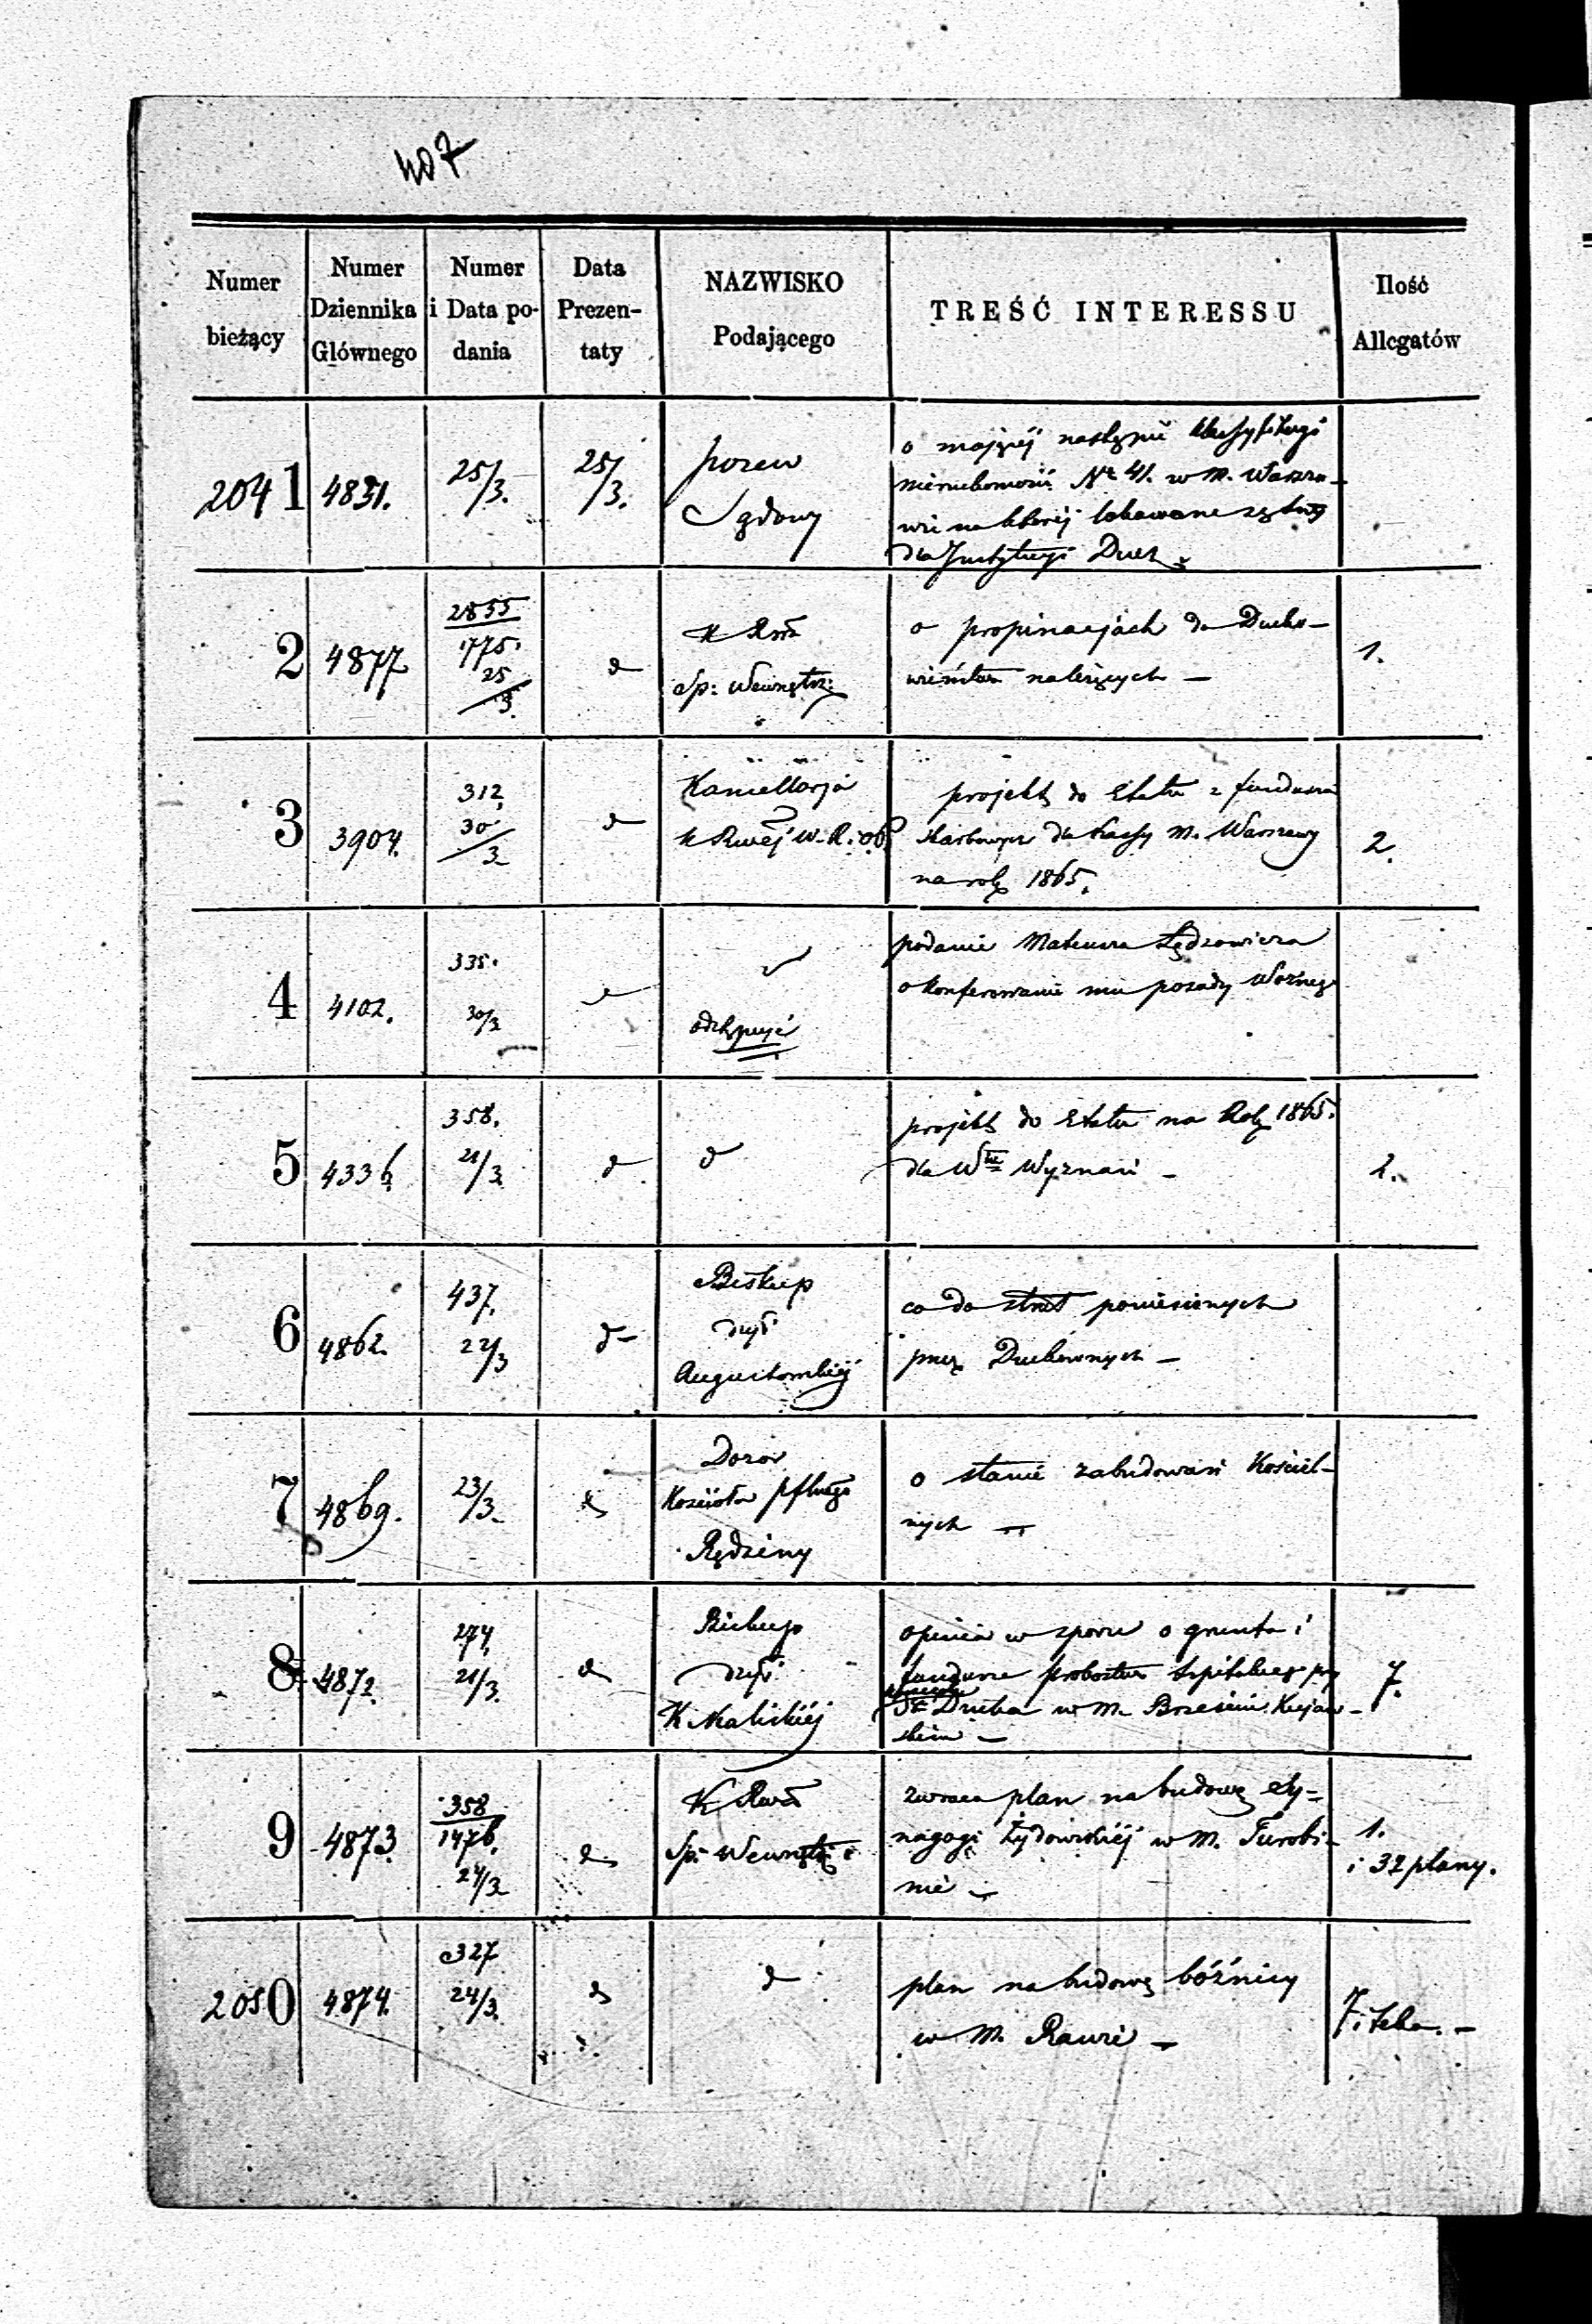 407
Numer bieżący
Numer Dziennika Głównego
Numer i Data podania
Data Prezentaty
NAZWISKO Podającego
TREŚĆ INTERESSU
Ilość Allegatów
2041
4831.
25/3.
25/3.
pozew
Sądowy
o mającej nastąpić klassyfikacyi
nieruchomości Nr 41. w M. Warsza-
wie na której lokowane są
dla Instytucyi Duch.
2
4877
2855
1775.
25
3.
d
Sp: Wewnętrz:
o propinacjach do Ducho-
wieństwa należących —
1.
3
3904.
312
30
3
d
Kancellarja
projekt do Etatu z fundusza
Skarbowych dla Kassy M. Warszawy
na rok 1865.
2.
4
4102.
335.
30/3
odstąpić
podanie Mateusza Lędzowicza
o konferowanie mu posady Woźnego
5
4336
358.
21/3
d
d
projekt do Etatu na Rok 1865.
dla Włu Wyznań —
2.
6
4862.
437.
22/3
d—
Biskup
dyć
Augustowskiej
co do strat poniesionych
przez Duchownych —
7
4869.
23/3.
d
Dozor
Kościoła
Rędziny
o stanie zabudowań Kościel-
nych —
8
4872.
274
21/3.
d
Biskup
dyć
K. Kaliskiéj
opinia w sporze o grunta i
fundusze probostwa Szpitalnego przy
Sgo Ducha w M. Brześciu Kujaw-
skim —
7.
9
4873.
358
1476.
24/3
d
Sp: Wewnętrz:
zwraca plan na budowę Sy=
nagogi Żydowskiéj w M. Turobi-
nie —
1.
i 32 plany.
2050
4874.
327
24/3.
d
d
plan na budowę bóźnicy
w M. Rawie —
7 i teka. —